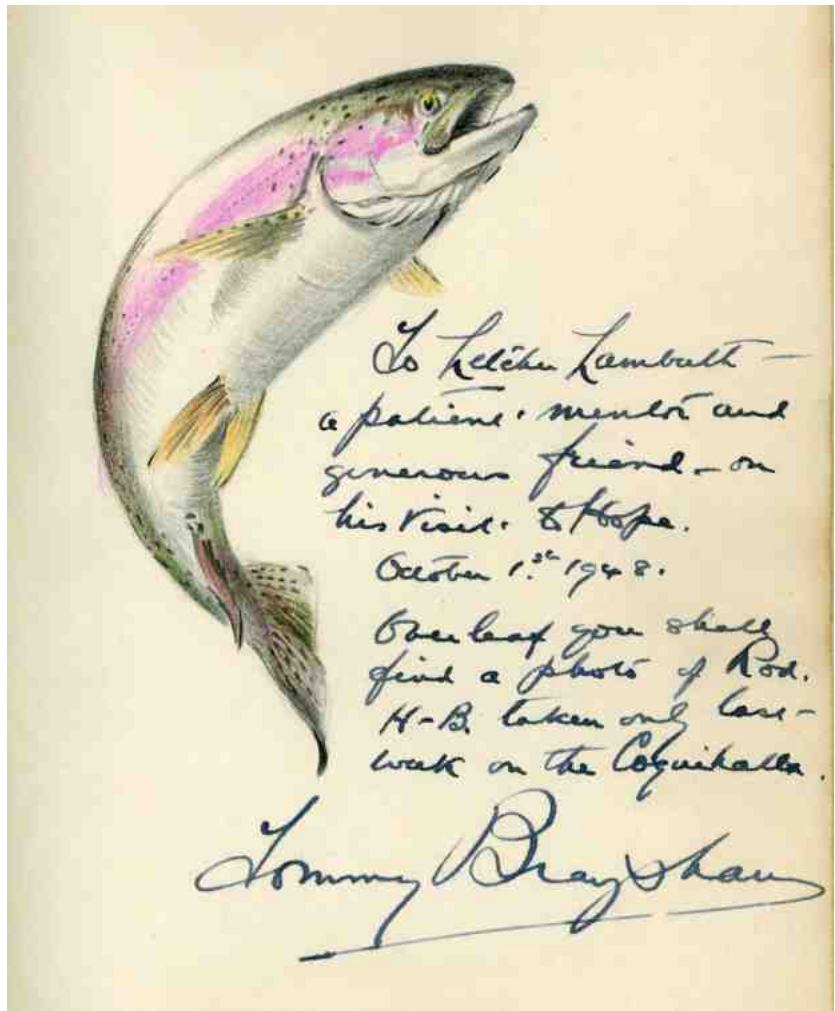 To Letcher Lambuth —
a patient mentor and
generous friend - on
his visit to Hope.
October 1.st 1948.
Overleaf you shall
find a photo of Rod.
H-B. taken only last
week on the Coquihalla.
Tommy Brayshaw